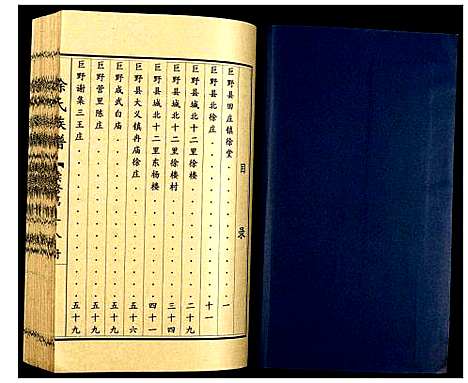 目录
巨野县田庄镇徐堂 一
巨野县北徐庄 十一
巨野县城北十二里徐楼 二十九
巨野县城北十二里徐楼村 三十四
巨野县城北十二里东杨楼 四十一
巨野县大义镇冉庙徐庄 五十六
巨野成武白庙 五十九
巨野营里陈庄 五十九
巨野谢集三王庄 五十九
徐氏族谱